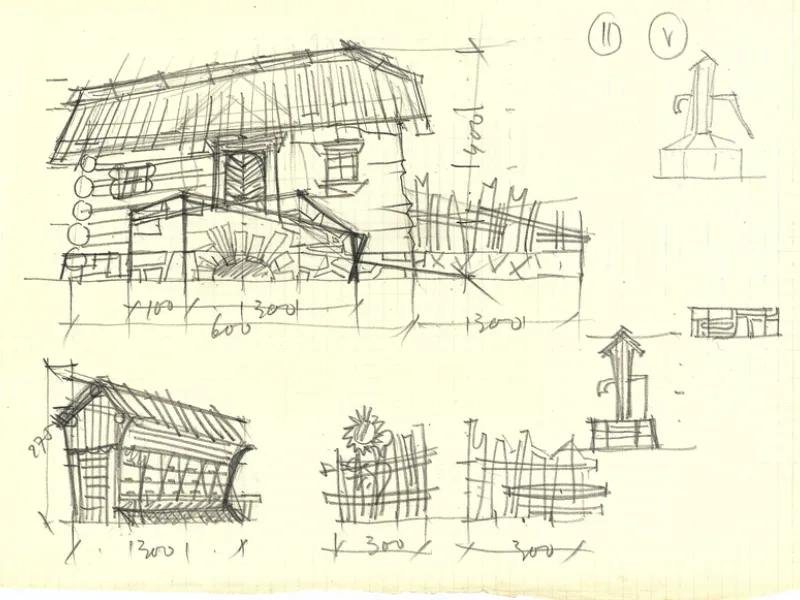 11 V
400
100 300
600 300
270
300 300 300